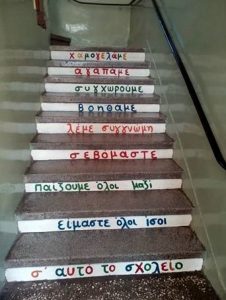 χαμογελάμε
αγαπάμε
συγχωρούμε
βοηθάμε
λέμε συγγνώμη
σεβόμαστε
παίζουμε όλοι μαζί
είμαστε όλοι ίσοι
σ' αυτό το σχολείο